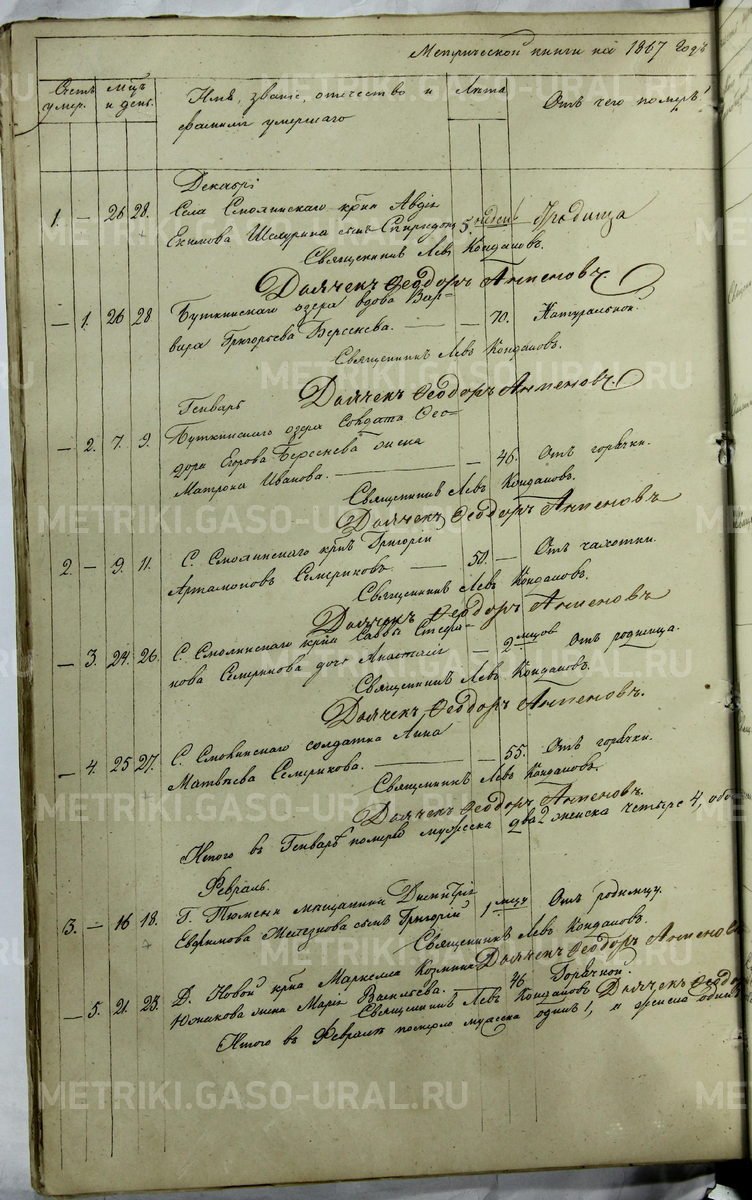 Метрической книги на 1867 годъ
Счетъ умер. мцъ и день. Имя, званіе, отечество и фамилія умершаго Лѣта Отъ чего померъ
Декабрь
1. — 26 28. Села Смолинскаго крнъ Авдія
Екимова сынъ Спиридонъ 5. недель Родимца
Священникъ Левъ Кондаковъ.
Дьячекъ Феодоръ Антеновъ.
— 1. 26 28 Буткинскаго озера вдова Вар-
вара Григорьева Берсенева. — 70. Натуральной.
Священникъ Левъ Кондаковъ.
Дьячекъ Феодоръ Антеновъ.
Генварь
— 2. 7. 9. Буткинскаго озера Солдата Фео-
дора Егорова Берсенева жена
Матрона Иванова. — 46. Отъ горячки.
Священникъ Левъ Кондаковъ.
Дьячекъ Феодоръ Антеновъ
2 — 9. 11. С. Смолинскаго крнъ Григорій
Артамоновъ Семериковъ — 50. — Отъ чахотки.
Священникъ Левъ Кондаковъ.
Дьячекъ Феодоръ Антеновъ
— 3. 24. 26. С. Смолинскаго крнъ Саввы Стефа-
нова Семерикова дочь Анастасія — 2 мцов Отъ родимца.
Священникъ Левъ Кондаковъ.
Дьячекъ Феодоръ Антеновъ.
— 4. 25 27. С. Смолинскаго солдатка Анна
Матвѣева Семерикова. — 55. Отъ горячки.
Священникъ Левъ Кондаковъ
Дьячекъ Феодоръ Антеновъ.
Итого въ Генварѣ померло мужеска два 2 женска четыре 4, обо
Февраль.
3. — 16 18. Г. Тюмени мещанина Дмитрія
Евфимова сынъ Григорій 1 мцу Отъ родимцу.
Священникъ Левъ Кондаковъ.
Дьячекъ Феодоръ Антенов
— 5. 21. 23. Д. Новой крна Маркела
Южакова жена Марія Васильева. — 46 Горячкой.
Священникъ Левъ Кондаковъ Дьячекъ Феодор
Итого въ Февралѣ померло мужеска одинъ 1, и женска одна
METRIKI.GASO-URAL.RU